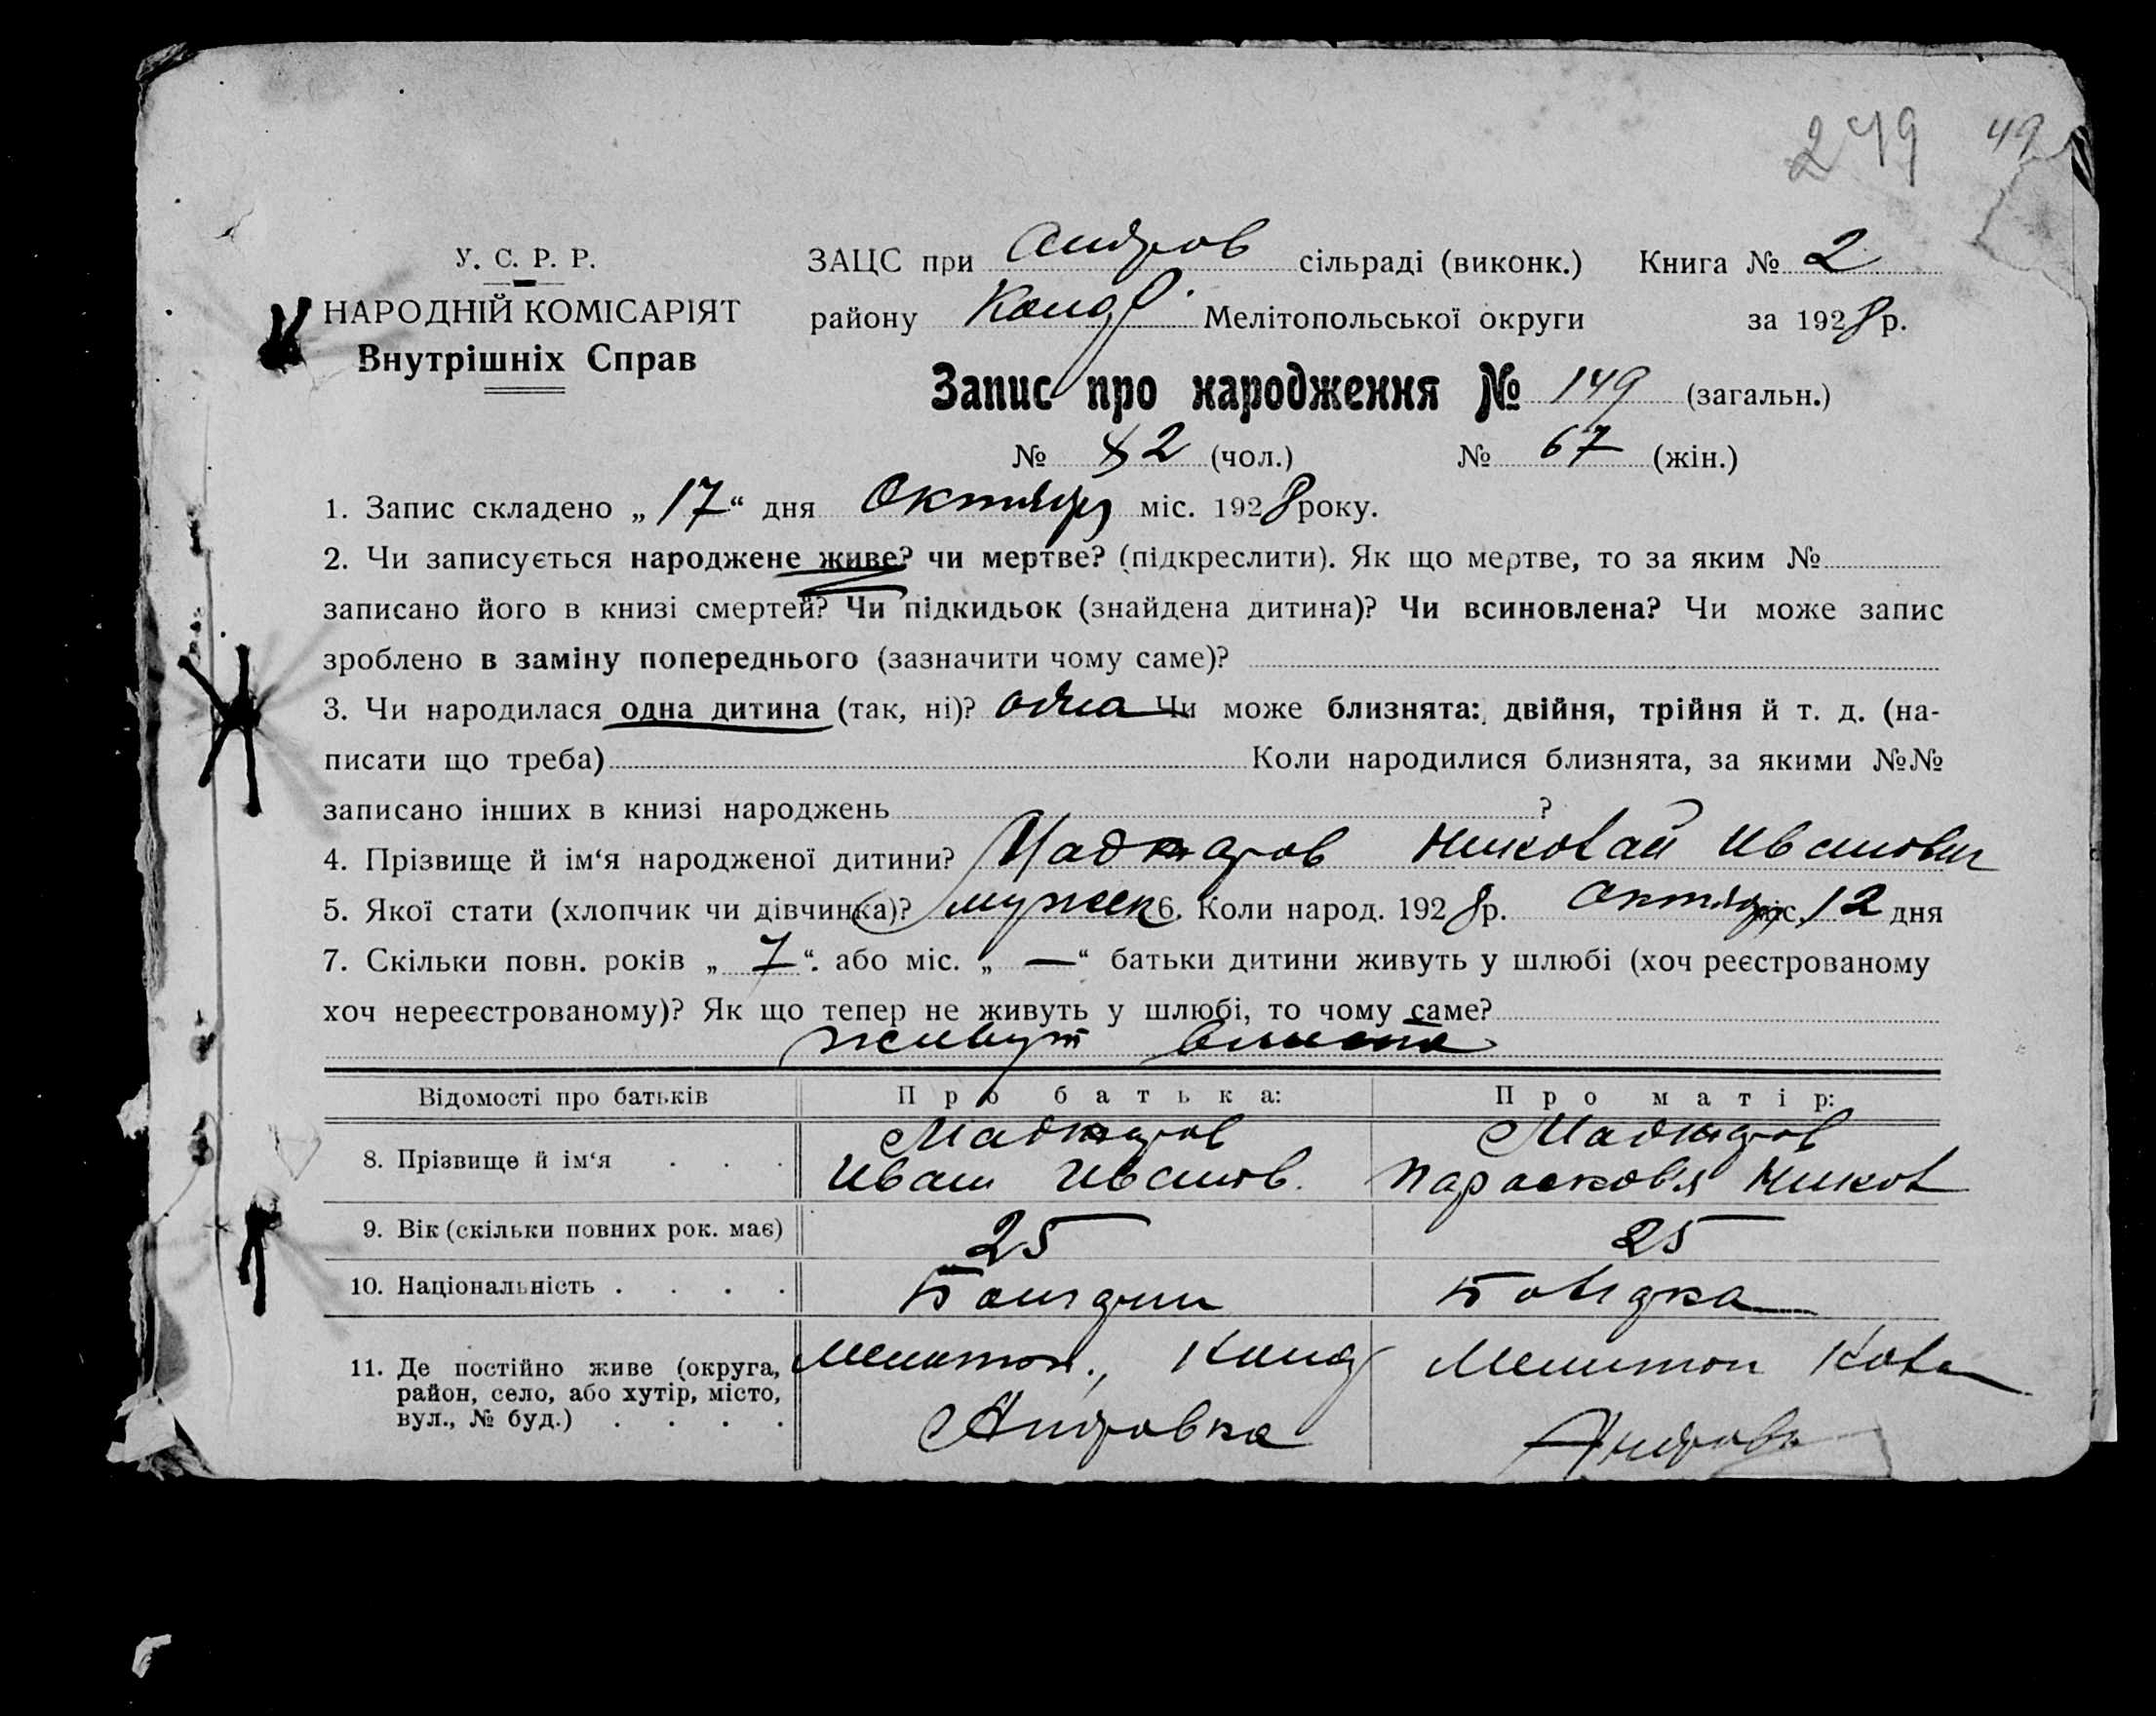 249 49
У. С. Р. Р.
НАРОДНІЙ КОМІСАРІЯТ
Внутрішніх Справ
ЗАЦС при Андров сільраді (виконк.) Книга № 2
району Мелітопольської округи за 1928 р.
Запис про народження № 149 (загальн.)
№ 82 (чол.) № 67 (жін.)
1. Запис складено „ 17 “ дня Октября міс. 1928 року.
2. Чи записується народжене живе? чи мертве? (підкреслити). Як що мертве, то за яким №
записано його в книзі смертей? Чи підкидьок (знайдена дитина)? Чи всиновлена? Чи може запис
зроблено в заміну попереднього (зазначити чому саме)?
3. Чи народилася одна дитина (так, ні)? одна Чи може близнята: двійня, трійня й т. д. (на-
писати що треба) Коли народилися близнята, за якими №№
записано інших в книзі народжень ?
4. Прізвище й ім‘я народженої дитини? Николай Иванович
5. Якої стати (хлопчик чи дівчинка)? мужск 6. Коли народ. 1928 р. Октября міс. 12 дня
7. Скільки повн. років „ 7 “. або міс. „ — “ батьки дитини живуть у шлюбі (хоч реєстрованому
хоч нереєстрованому)? Як що тепер не живуть у шлюбі, то чому саме?
живут вместе
Відомості про батьків Про батька: Про матір:
8. Прізвище й ім‘я . . .
Иван Иванов. Парасковья Никол
9. Вік (скільки повних рок. має) 25 25
10. Національність . . . . Болгарин Болгарка
11. Де постійно живе (округа, Мелитоп., Мелитоп
район, село, або хутір, місто,
вул., № буд.) . . . . Андровка Андровк